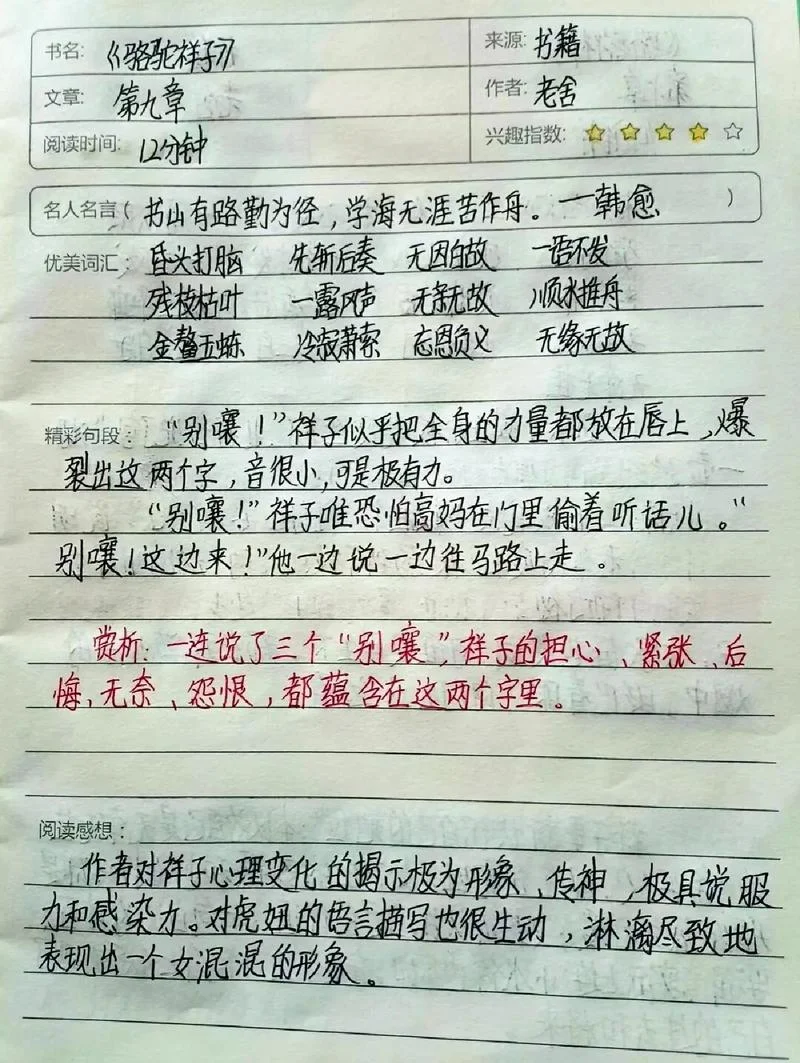 书名: 《骆驼祥子》 来源: 书籍
文章: 第九章 作者: 老舍
阅读时间: 12分钟 兴趣指数:
名人名言( 书山有路勤为径，学海无涯苦作舟。—韩愈 )
优美词汇: 昏头打脑 先斩后奏 无因白故 一语不发
残枝枯叶 一露风声 无亲无故 顺水推舟
金鳌玉蝀 冷寂萧索 忘恩负义 无缘无故
精彩句段: “别嚷！”祥子似乎把全身的力量都放在唇上，爆
裂出这两个字，音很小，可是极有力。
“别嚷！”祥子唯恐怕高妈在门里偷着听话儿。“
别嚷！这边来！”他一边说一边往马路上走。
赏析: 一连说了三个“别嚷”，祥子的担心、紧张、后
悔、无奈、怨恨，都蕴含在这两个字里。
阅读感想:
作者对祥子心理变化的揭示极为形象、传神，极具说服
力和感染力。对虎妞的语言描写也很生动，淋漓尽致地
表现出一个女混混的形象。